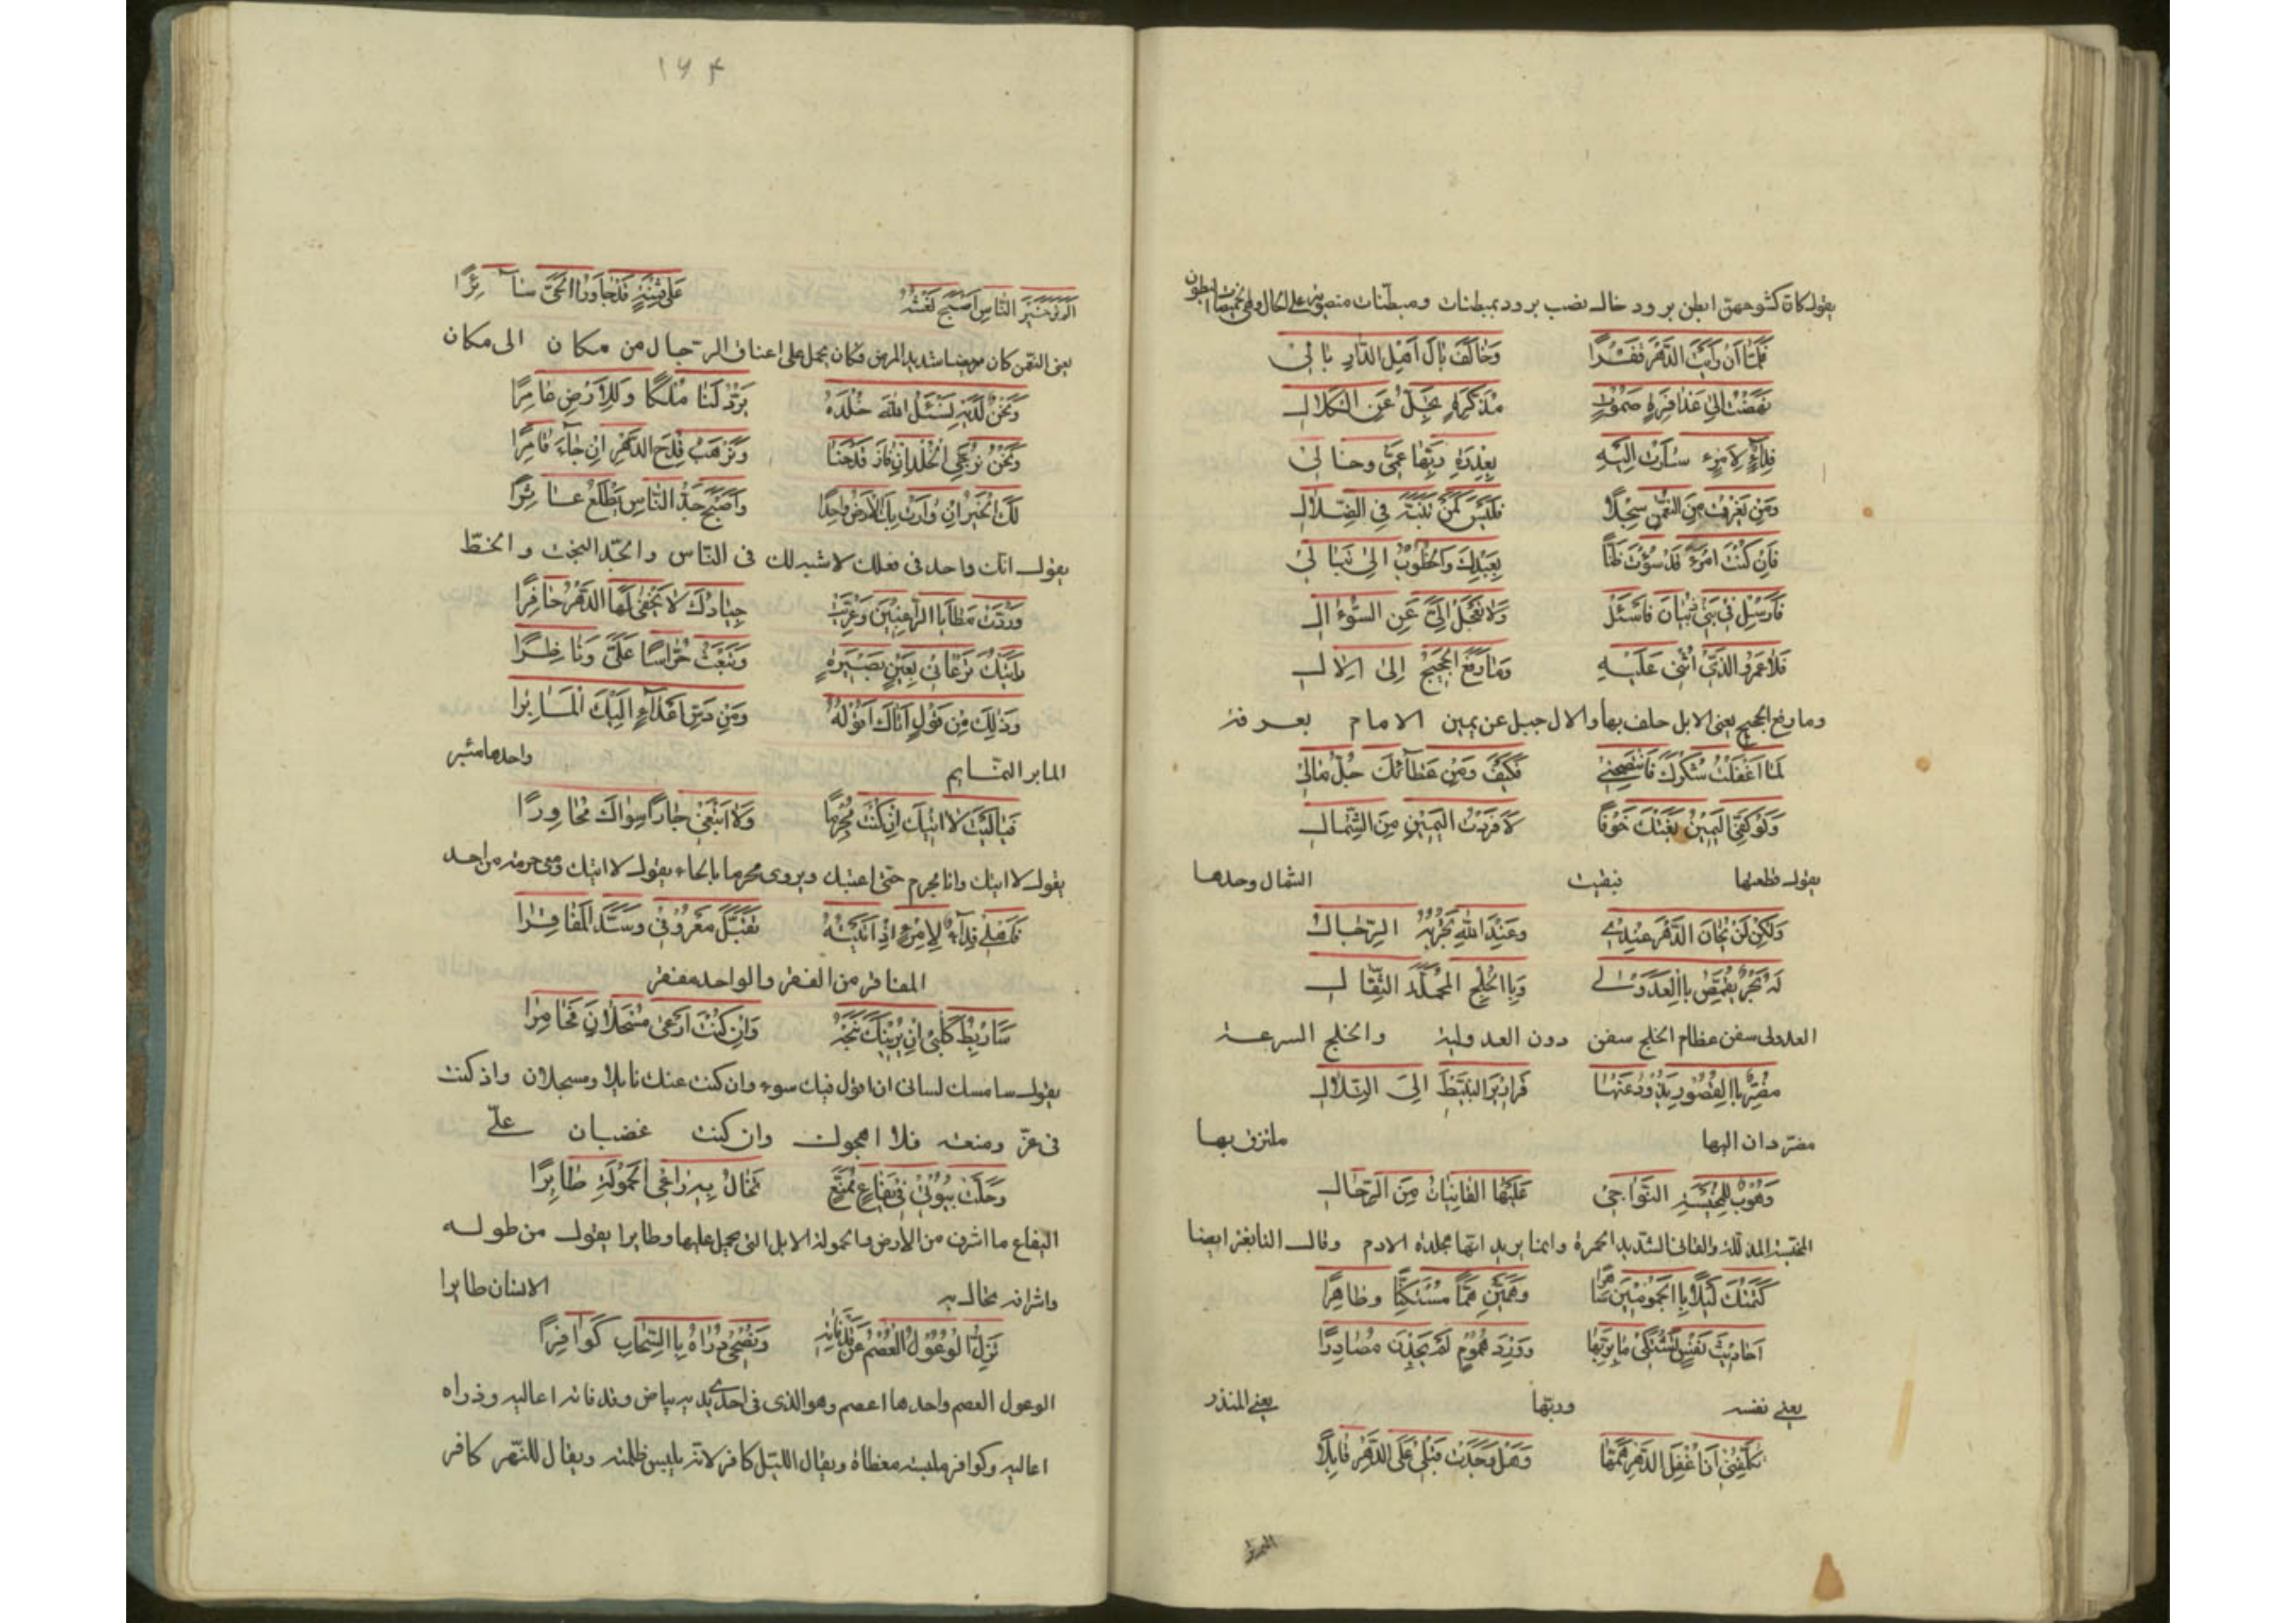 يقول كان كشوحهن ابطن برود خال نصب برود بمبطنات ومبطنات منصوبة على الحال وهي خميصات البطون
فَلَمَّا اَنْ رَاَيْتُ الدَّهْرَ قَفْرًا وَخَالَفَ بَالَ اَهْلِ الدَّارِ بَالِيْ
نَهَضْتُ اِلىٰ عَذَافِرَةٍ صَمُوْتٍ مُذَكَّرَةٍ تَجِلُّ عَنِ الْكَلَالِ
فِدَآءٌ لِاَمْرِءٍ سَارَتْ اِلَيْهِ بِعِذْرَةِ رَبِّهَا عَمِّيْ وَخَالِيْ
وَمَنْ يَغْرِفْ مِنَ النُّعْمٰنِ سَجْلًا فَلَيْسَ كَمَنْ يُتَيَّهُ فِي الضَّلَالِ
فَاِنْ كُنْتَ امْرَءً قَدْ سُؤْتَ ظَنًّا بِعَبْدِكَ وَالْخُطُوْبُ اِلىٰ تَبَالِيْ
فَاَرْسِلْ فِيْ بَنِيْ ذُبْيَانَ فَاسْئَلْ وَلَا تَعْجَلْ اِلَيَّ عَنِ السُّؤَالِ
فَلَا عَمْرُ الَّذِيْ اُثْنِيْ عَلَيْهِ وَمَا رَفَعَ الْحَجِيْجُ اِلىٰ اِلَالِ
وما رفع الحجيج يعنى الابل حلف بها والال جبل عن يمين الامام بعرفة
لَمَا اَغْفَلْتُ شُكْرَكَ فَانْتَصِحْنِيْ فَكَيْفَ وَمِنْ عَطَآئِكَ جُلُّ مَالِيْ
وَلَوْ كَفِّيْ الْيَمِيْنُ بَغَتْكَ خَوْنًا لَاَفْرَدْتُ الْيَمِيْنِ مِنَ الشِّمَالِ
يقول قطعتها فبقيت الشمال وحدها
وَلٰكِنْ لَنْ تُخَانَ الدَّهْرَ عِنْدِيْ وَعِنْدَ اللهِ تَجْزِيَةُ الرِّجَالِ
لَهُ بَحْرٌ يُقَمِّصُ بِاالْعَدَوْلِيْ وَبِاالْخُلُجِ الْمُحَمَّلَةِ الثِّقَالِ
العدولى سفن عظام الخلج سفن دون العدولية والخلج السرعة
مُضِرٌّ بِاالْقُصُوْرِ يَذُوْدُ عَنْهَا قَرَاقِيْرَ النَّبِيْطِ اِلَى التِّلَالِ
مضرّ دان اليها ملتزق بها
وَهُوْبٌ لِلْمُخَيَّسَةِ النَّوَاجِيْ عَلَيْهَا الْقَانِيَاتُ مِنَ الرِّحَالِ
المخيّسة المذللة والقانى الشديد الحمرة وانما يريد انها مجلدة الادم وقال النابغة ايضا
كَتَمْتُكَ لَيْلًا بِاالْجَمُوْمَيْنِ سَاهِرًا وَهَمَّيْنِ هَمًّا مُسْتَكِنًّا وَظَاهِرًا
اَحَادِيْثَ نَفْسٍ تَشْتَكِيْ مَا يَرِيْبُهَا وَوِرْدَ هُمُوْمٍ لَمْ يَجِدْنَ مَصَادِرًا
يعنى نفسه وربّها يعنى المنذر
تُكَلِّفُنِيْ اَنْ اُغْفِلَ الدَّهْرَ هَمَّهَا وَهَلْ وَجَدَتْ قَبْلِيْ عَلَى الدَّهْرِ قَابِلًا
۱۷۴
اَلَمْ تَرَ خَيْرَ النَّاسِ اَصْبَحَ نَعْشُهُ عَلىٰ فِتْيَةٍ قَدْ جَاوَزُاالْحَيَّ سَآئِرًا
يعنى النعمن كان مريضا شديد المرض فكان يحمل على اعناق الرجال من مكان الى مكان
وَنَحْنُ لَدَيْهِ نَسْئَلُ اللهَ خُلْدَهُ يَرُدُّ لَنَا مُلْكًا وَلِلْاَرْضِ عَامِرًا
وَنَحْنُ نُرَجِّي الْخُلْدَ اِنْ فَازَ قِدْحُنَا وَنَرْهَبُ قِدْحَ الدَّهْرِ اِنْ جَآءَ قَامِرًا
لَكَ الْخَيْرُ اِنْ وَارَتْ بِكَ الْاَرْضُ وَاحِدًا وَاَصْبَحَ جَدُّ النَّاسِ يَظْلَعُ عَاثِرًا
يقول انك واحد فى فعلك لا شبه لك فى النّاس والجدّ البخت والحظّ
وَرُدَّتْ مَطَايَا الرَّاغِبِيْنَ وَعُرِّيَتْ جِيَادُكَ لَا يُحْفِيْ لَهَا الدَّهْرُ حَافِرًا
رَاَيْتُكَ تَرْعَانِيْ بِعَيْنٍ بَصِيْرَةٍ وَتَبْعَثُ حُرَّاسًا عَلَيَّ وَنَاظِرًا
وَذٰلِكَ مِنْ قَوْلٍ اَتَاكَ اَقُوْلُهُ وَمِنْ دَسِّ اَعْدَآءٍ اِلَيْكَ الْمَآبِرَا
المابر النمايم واحدها مئبر
فَآلَيْتُ لَا اٰتِيْكَ اِنْ كُنْتُ مُجْرِمًا وَلَا اَبْتَغِيْ جَارًا سِوَاكَ مُجَاوِرًا
يقول لا اتيك وانا مجرم حتى اعتبك ويروى محرما بالحاء يقول لا اتيك ومعى حرمة من احد
فَاَهْلِيْ فِدَآءٌ لِامْرِءٍ اِذْ اَتَيْتُهُ تَقَبَّلَ مَعْرُوْفِيْ وَسَدَّ الْمَفَاقِرَا
المفاقر من الفقر والواحد مفقر
سَاَرْبِطُ كَلْبِيْ اَنْ يُرِيْبَكَ نَبْحُهُ وَاِنْ كُنْتُ اَرْعىٰ مُسْحَلَانَ فَحَامِرًا
يقول سامسك لسانى ان اقول فيك سوء وان كنت عنك نايلا ومسحلان واذ كنت
فى عزّ ومنعة فلا اهجوك وان كنت غضبان علىّ
وَحَلَّتْ بُيُوْتِيْ فِيْ يَفَاعٍ مُمَنَّعٍ تَخَالُ بِهِ رَاعِي الْحَمُوْلَةِ طَايِرًا
اليفاع ما اشرف من الارض والحمولة الابل التى يحمل عليها وطايرا يقول من طوله
واشرافه يخال به الانسان طايرا
تَزِلُّ الْوُعُوْلُ الْعُصْمُ عَنْ قُذُفَاتِهِ وَتُضْحِيْ ذُرَاهُ بِاالسَّحَابِ كَوَافِرًا
الوعول العصم واحدها اعصم وهو الذى فى احدى يديه بياض وقذفاته اعاليه وذراه
اعاليه وكوافر ملبسة مغطاة ويقال الليل كافر لانه يلبس ظلمته ويقال للنهر كافر